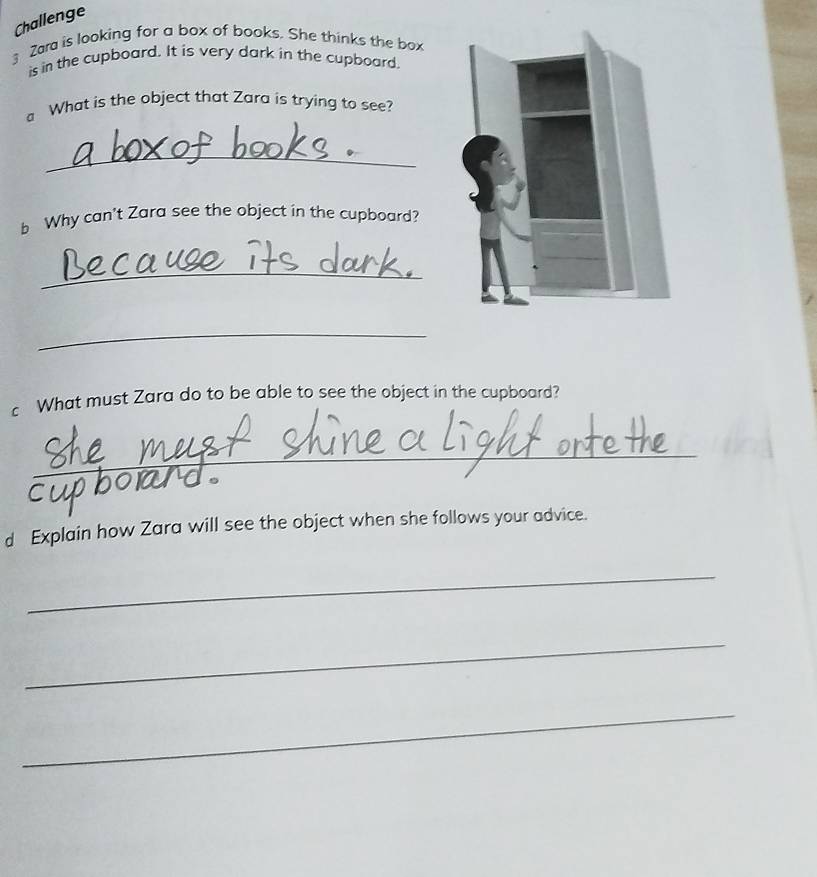 Challenge
3 Zara is looking for a box of books. She thinks the box
is in the cupboard. It is very dark in the cupboard.
a What is the object that Zara is trying to see?
a box of books.
b Why can't Zara see the object in the cupboard?
Because its dark.
c What must Zara do to be able to see the object in the cupboard?
She must shine a light onte the
cupboard.
d Explain how Zara will see the object when she follows your advice.